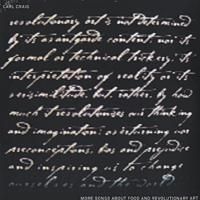 CARL CRAIG
revolutionary art is not determined
by its avantgarde content nor its
formal or technical trickery, its
interpretation of reality or its
verisimilitude, but rather, by how
much it revolutionizes our thinking
and imagination; overturning our
preconceptions, bias and prejudice
and inspiring us to change
ourselves and the world
MORE SONGS ABOUT FOOD AND REVOLUTIONARY ART